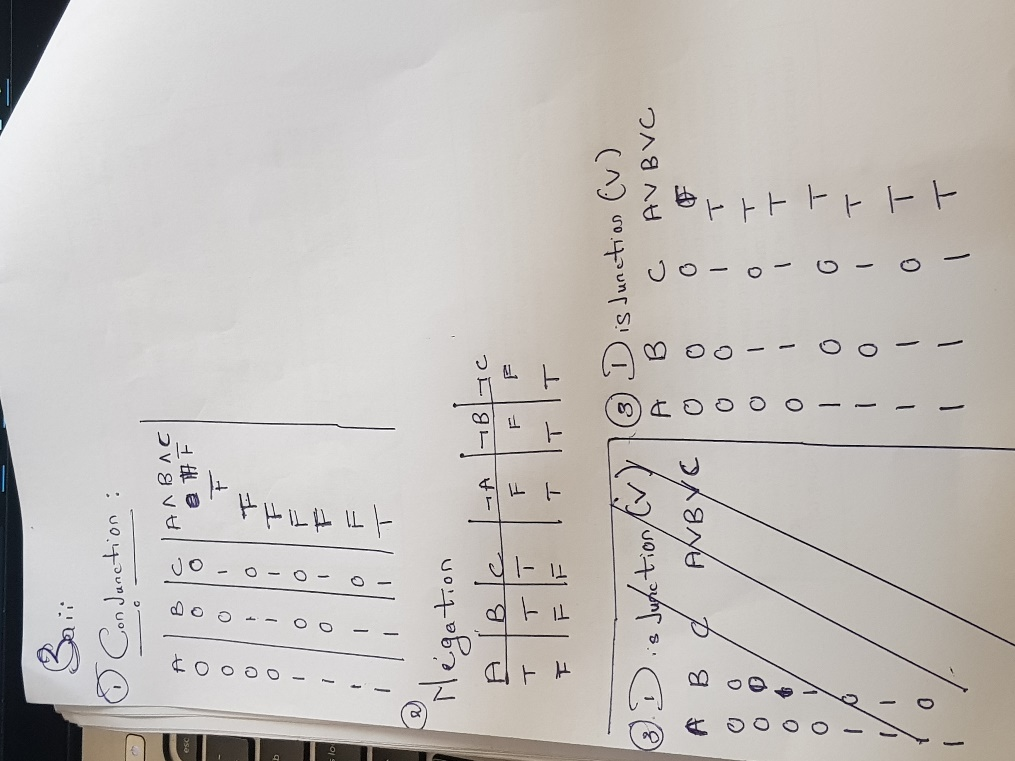 aii:
① Conjunction :
A B C A∧B∧C
0 0 0 F
0 0 1 F
0 1 0 F
0 1 1 F
1 0 0 F
1 0 1 F
1 1 0 F
1 1 1 T
② Negation
A B C ¬A ¬B ¬C
T T T F F F
F F F T T T
③. Disjunction (v)
A B C AVBVC
0 0
0
0
0 1
1 0
1 1
1 0
1
③ Disjunction (v)
A B C AVBVC
0 0 0
0 0 1 T
0 1 0 T
0 1 1 T
1 0 0 T
1 0 1 T
1 1 0 T
1 1 1 T
esc